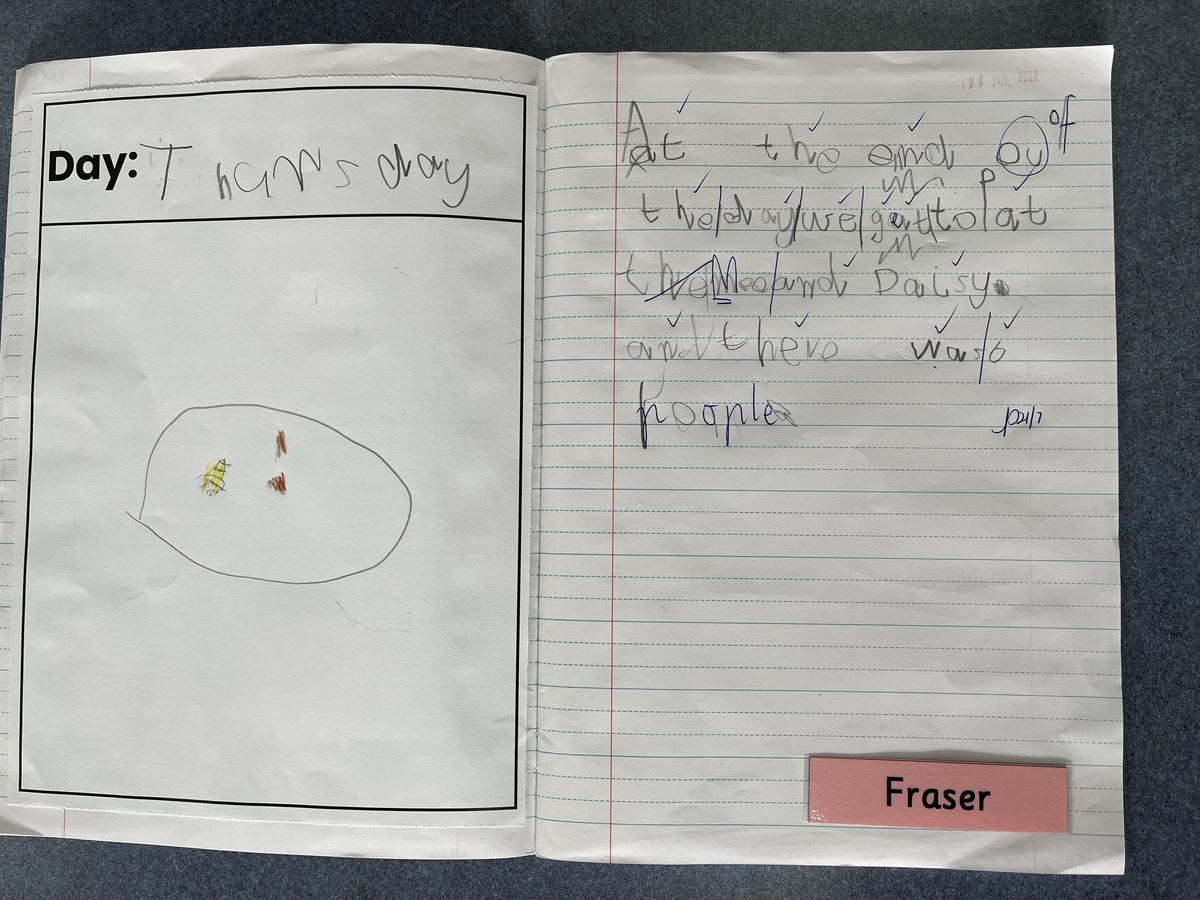 Day: Thursday
21 JUL 2022
At the end ov of
the day we gat to pat
the Meo and Daisy.
and there was 6
poople
Fraser